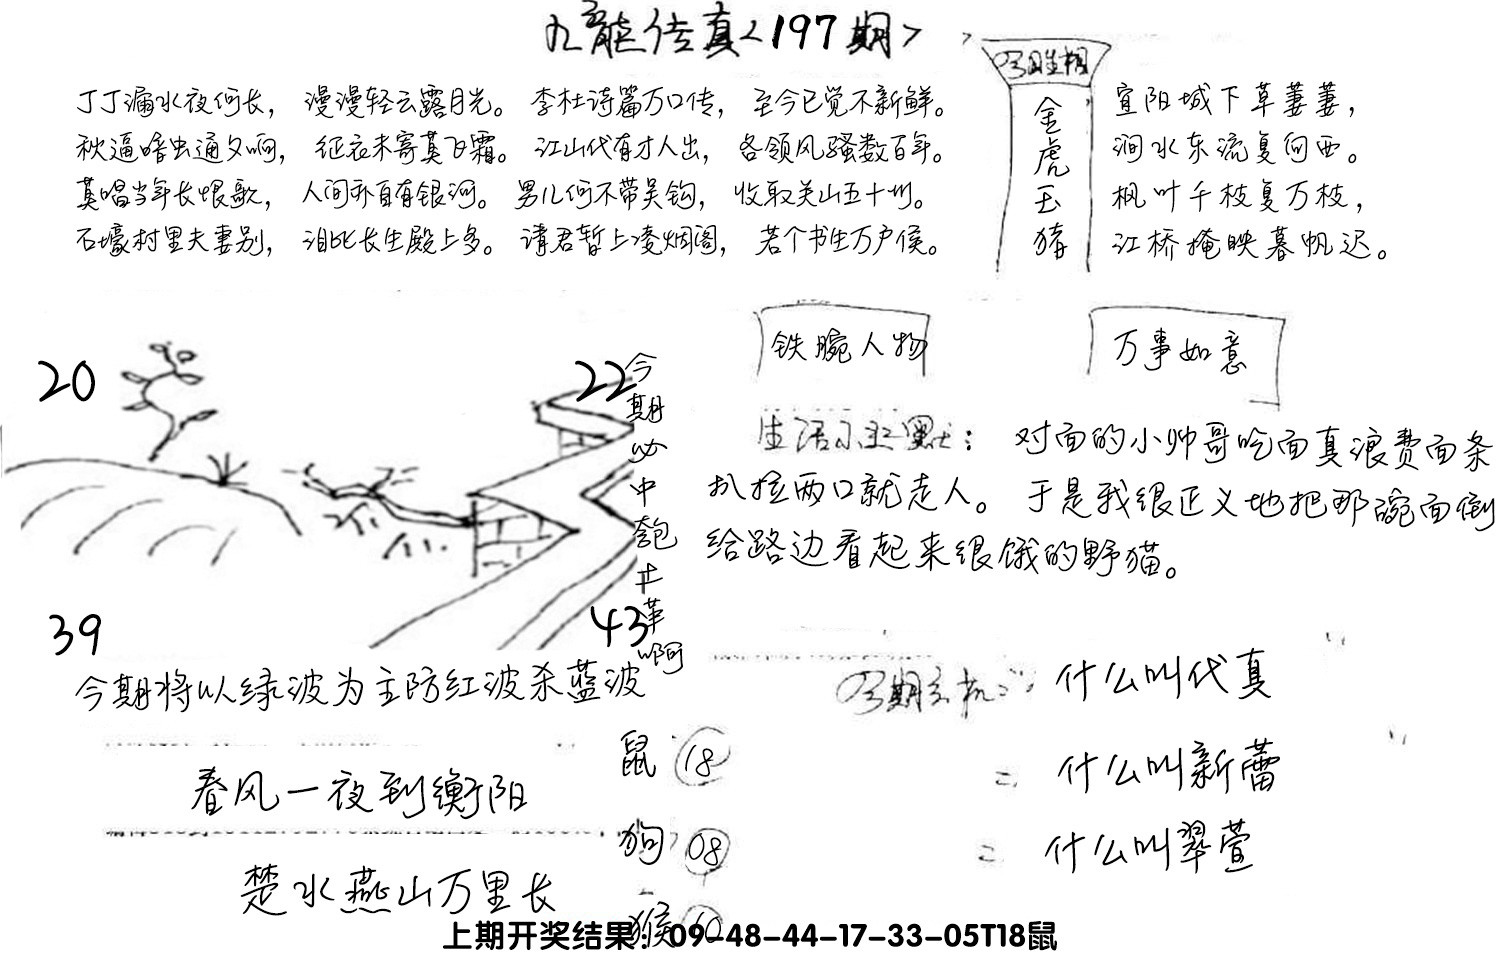 九龍传真<197期>
丁丁漏水夜何长，漫漫轻云露月光。李杜诗篇万口传，至今已觉不新鲜。
秋逼暗虫通夕响，征衣未寄莫飞霜。江山代有才人出，各领风骚数百年。
莫唱当年长恨歌，人间亦自有银河。男儿何不带吴钩，收取关山五十州。
石壕村里夫妻别，泪比长生殿上多。请君暂上凌烟阁，若个书生万户侯。
金虎玉猪
宜阳城下草萋萋，
涧水东流复向西。
枫叶千枝复万枝，
江桥掩映暮帆迟。
铁腕人物
万事如意
20
22
39
43
今期必中
生活小幽默：对面的小帅哥吃面真浪费面条
扒拉两口就走人。于是我很正义地把那碗面倒
给路边看起来很饿的野猫。
今期将以绿波为主防红波杀蓝波
春风一夜到衡阳
楚水燕山万里长
鼠 18
狗 08
猴
今期玄机 什么叫代真
= 什么叫新蕾
= 什么叫翠萱
上期开奖结果：09-48-44-17-33-05T18鼠